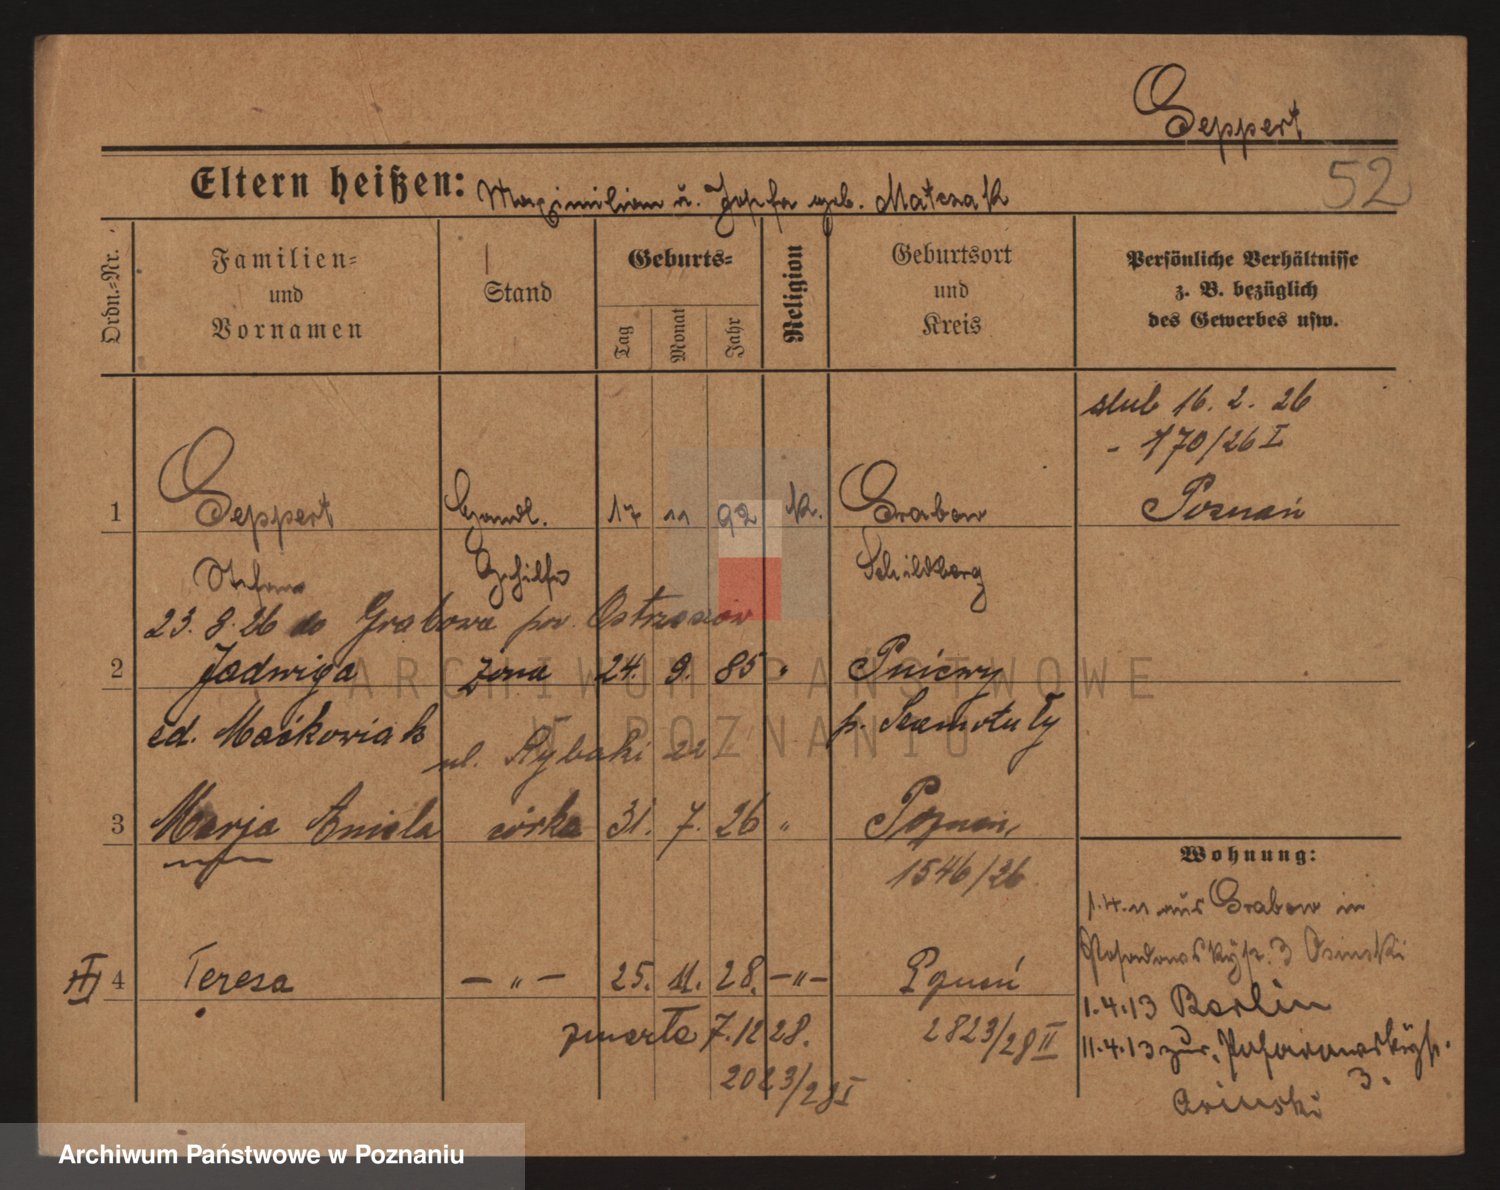 Seppert
52
Eltern heißen: Maximilian u. Josefa geb. Matczak
Ordn.-Nr.
Familien-
und
Vornamen
Stand
Geburts-
Tag
Monat
Jahr
Religion
Geburtsort
und
Kreis
Persönliche Verhältnisse
z. B. bezüglich
des Gewerbes usw.
slub 16. 2. 26
- 170/26 I
Poznań
1 Seppert Handl. 17 11 92 k. Grabow
Stefan Gehilfe Schildberg
23. 8. 26 do Grabowa pow. Ostrzeszów
2 Jadwiga żona 24. 9. 85 " Pniewy
zd. Maćkowiak p. Szamotuły
ul. Rybaki 22
3 Marja Aniela córka 31. 7. 26 " Poznań
1546/26
III 4 Teresa — " — 25. 11. 28. — " — Poznań
zmarła 7. 12 28. 2823/28 II
2023/28 I
Wohnung:
1.4.11 aus Grabow in
3 Osinski
1.4.13 Berlin
11.4.13 zur.
3.
Osinski
ARCHIWUM PAŃSTWOWE
W POZNANIU
Archiwum Państwowe w Poznaniu